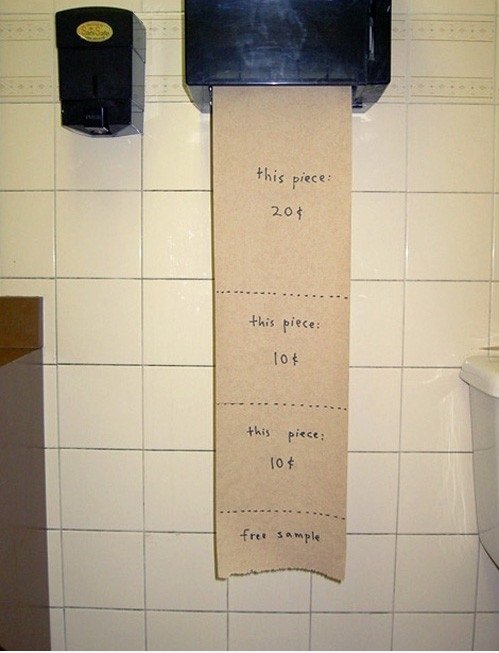 SaniSafe
this piece:
20¢
this piece:
10¢
this piece:
10¢
free sample